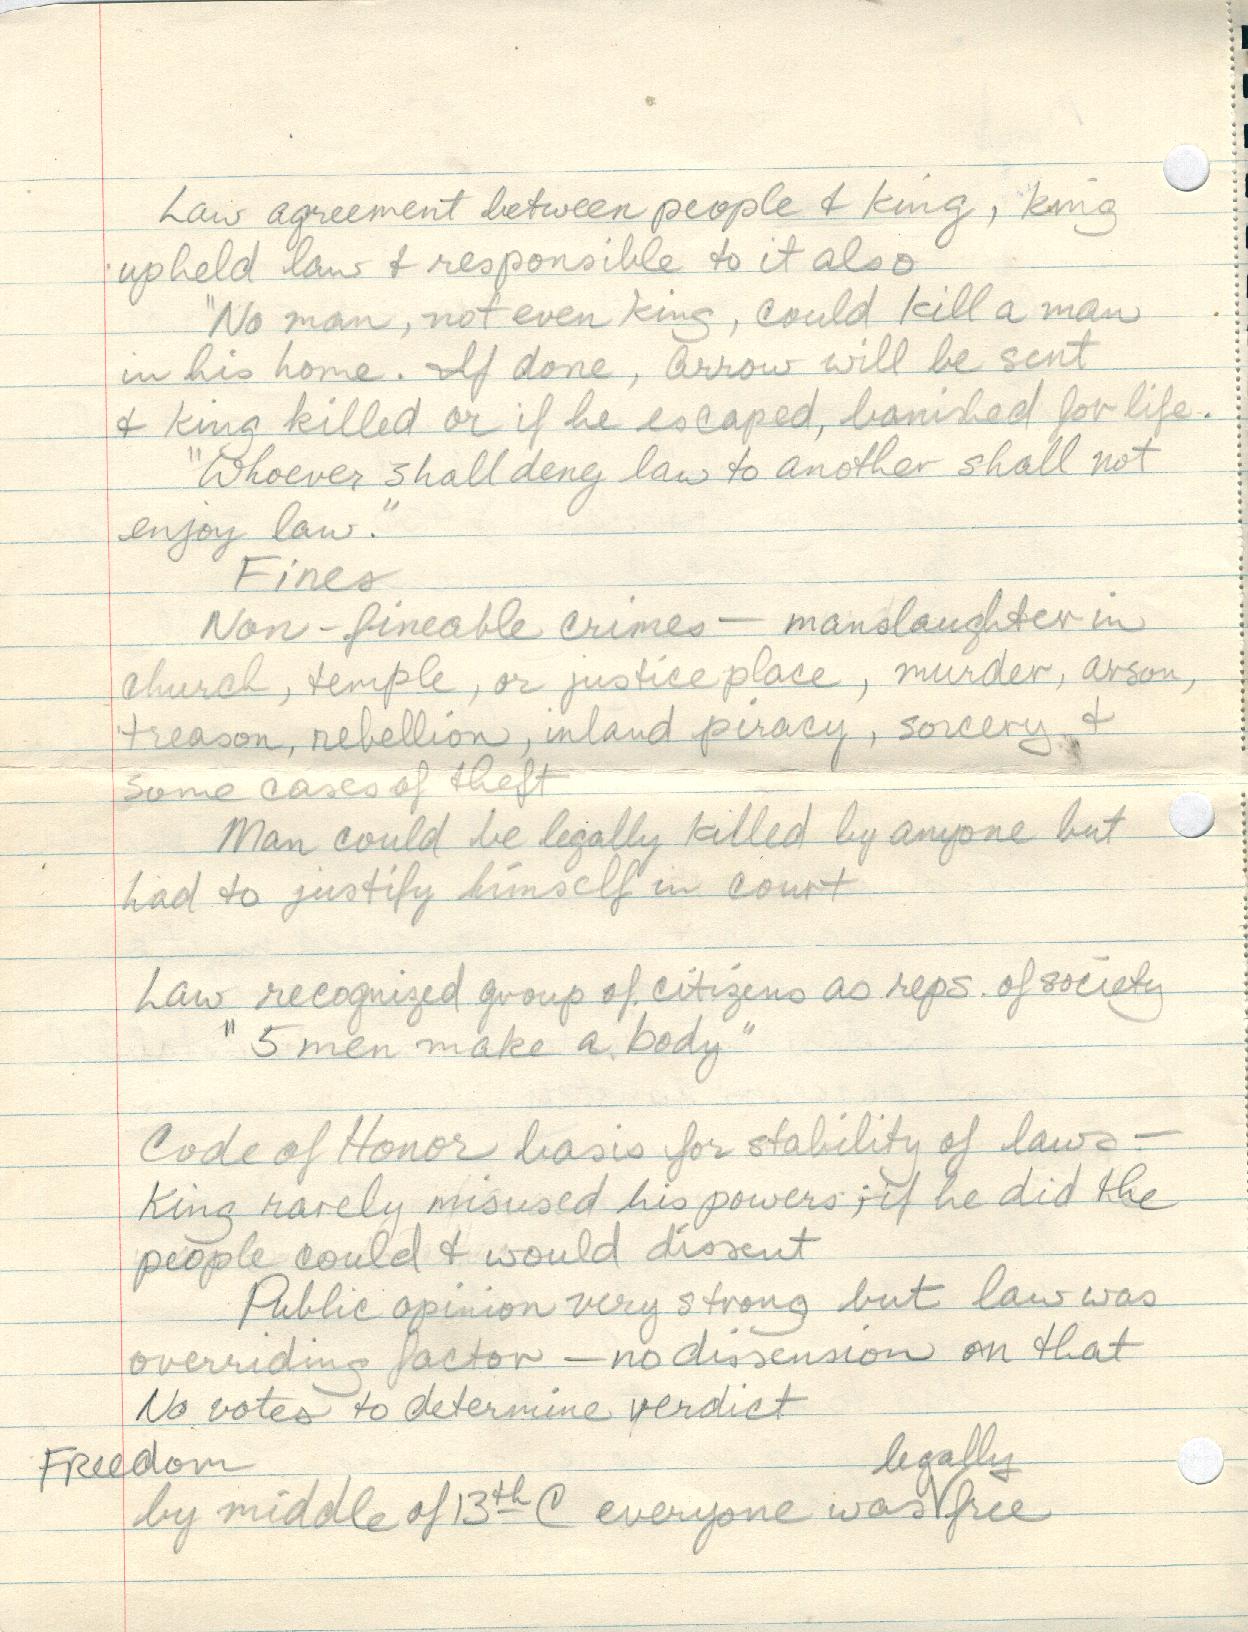 Law agreement between people & king, king
upheld law & responsible to it also
"No man, not even king, could kill a man
in his home. If done, arrow will be sent
& king killed or if he escaped, banished for life.
"Whoever shall deny law to another shall not
enjoy law."
Fines
Non-fineable crimes — manslaughter in
church, temple, or justice place, murder, arson,
treason, rebellion, inland piracy, sorcery &
some cases of theft
Man could be legally killed by anyone but
had to justify himself in court
Law recognized group of citizens as reps. of society
"5 men make a body"
Code of Honor basis for stability of laws —
King rarely misused his powers; if he did the
people could & would dissent
Public opinion very strong but law was
overriding factor — no dissension on that
No votes to determine verdict
Freedom
by middle of 13th C everyone was legally free